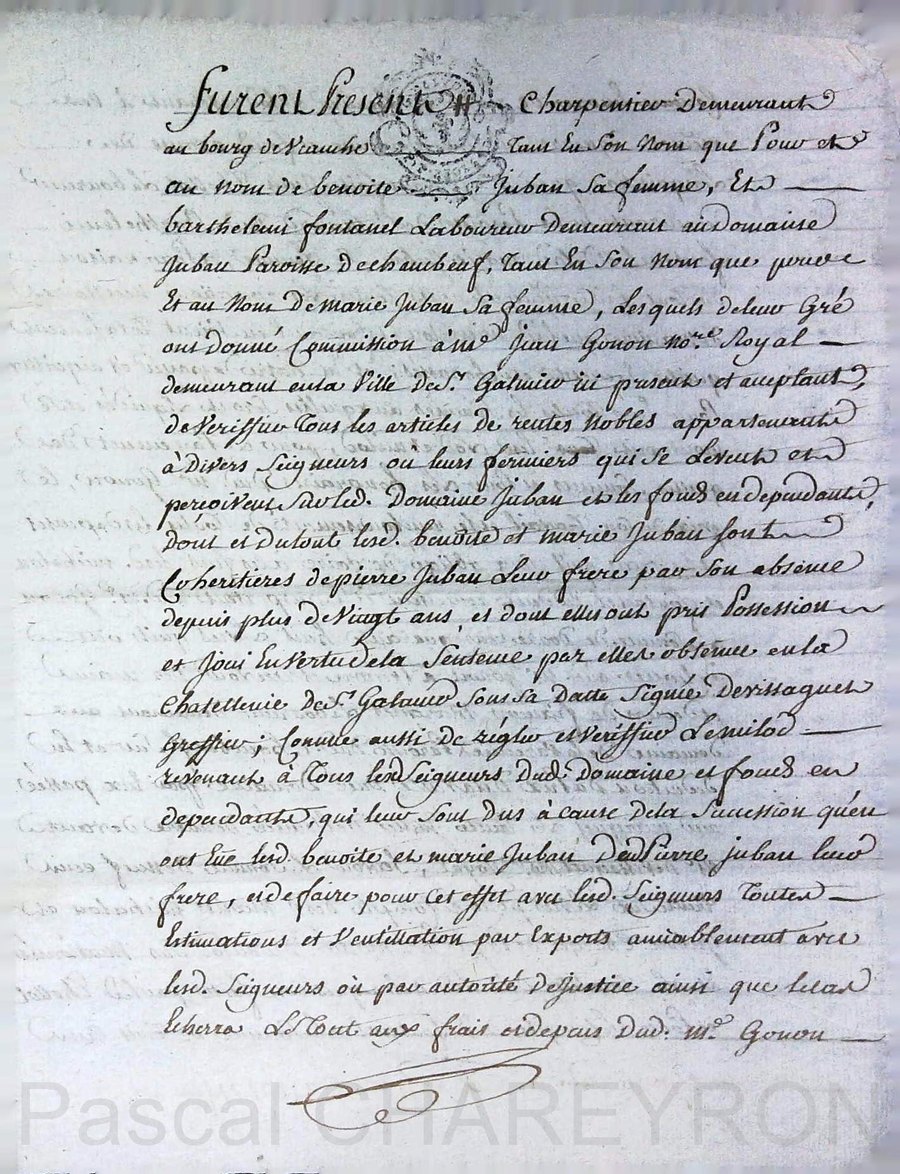 furent Presents Charpentier Demeurant
au bourg de Veauche Tant En Son Nom que Pour et
au nom de benoite Juban Sa femme, Et
barthelemi fontanel Laboureur Demeurant au Domaine
Juban Paroisse de chambeuf, Tant En Son Nom que pour et
Et au Nom De marie Juban Sa femme, Lesquels de leur Gré
ont Donné Commission à me Jean Gonon nore Royal
demeurant en la Ville de St Galmier ici present et acceptant,
de Veriffier Tous les articles de rentes Nobles appartenants
à Divers Seigneurs ou leurs fermiers qui Se Levent et
percoivent Sur led. Domaine Juban et les fonds en dependants,
dont et du tout lesd. benoite et marie Juban Sont
Coheritieres de pierre Juban Leur frere par Son absence
depuis plus de Vingt ans, et dont elles ont pris Possession
et Joui En Vertu de la Sentence par elles obtenue en la
Chatellenie de St Galmier Sous Sa Datte Signée
Greffier; Comme aussi de régler et Veriffier Le milod
revenant à Tous lesd Seigneurs Dud. Domaine et fonds en
dependants, qui leur Sont Dus à cause de la Succession qu'en
ont Eüe lesd. benoite et marie Juban Dud Pierre juban leur
frere, et de faire pour Cet effet avec lesd. Seigneurs Toutes
Estimations et Ventillation par Experts amiablement avec
lesd. Seigneurs où par autorité De Justice ainsi que le cas
Echerra Le Tout aux frais et depens Dud. me. Gonon
Pascal CHAREYRON